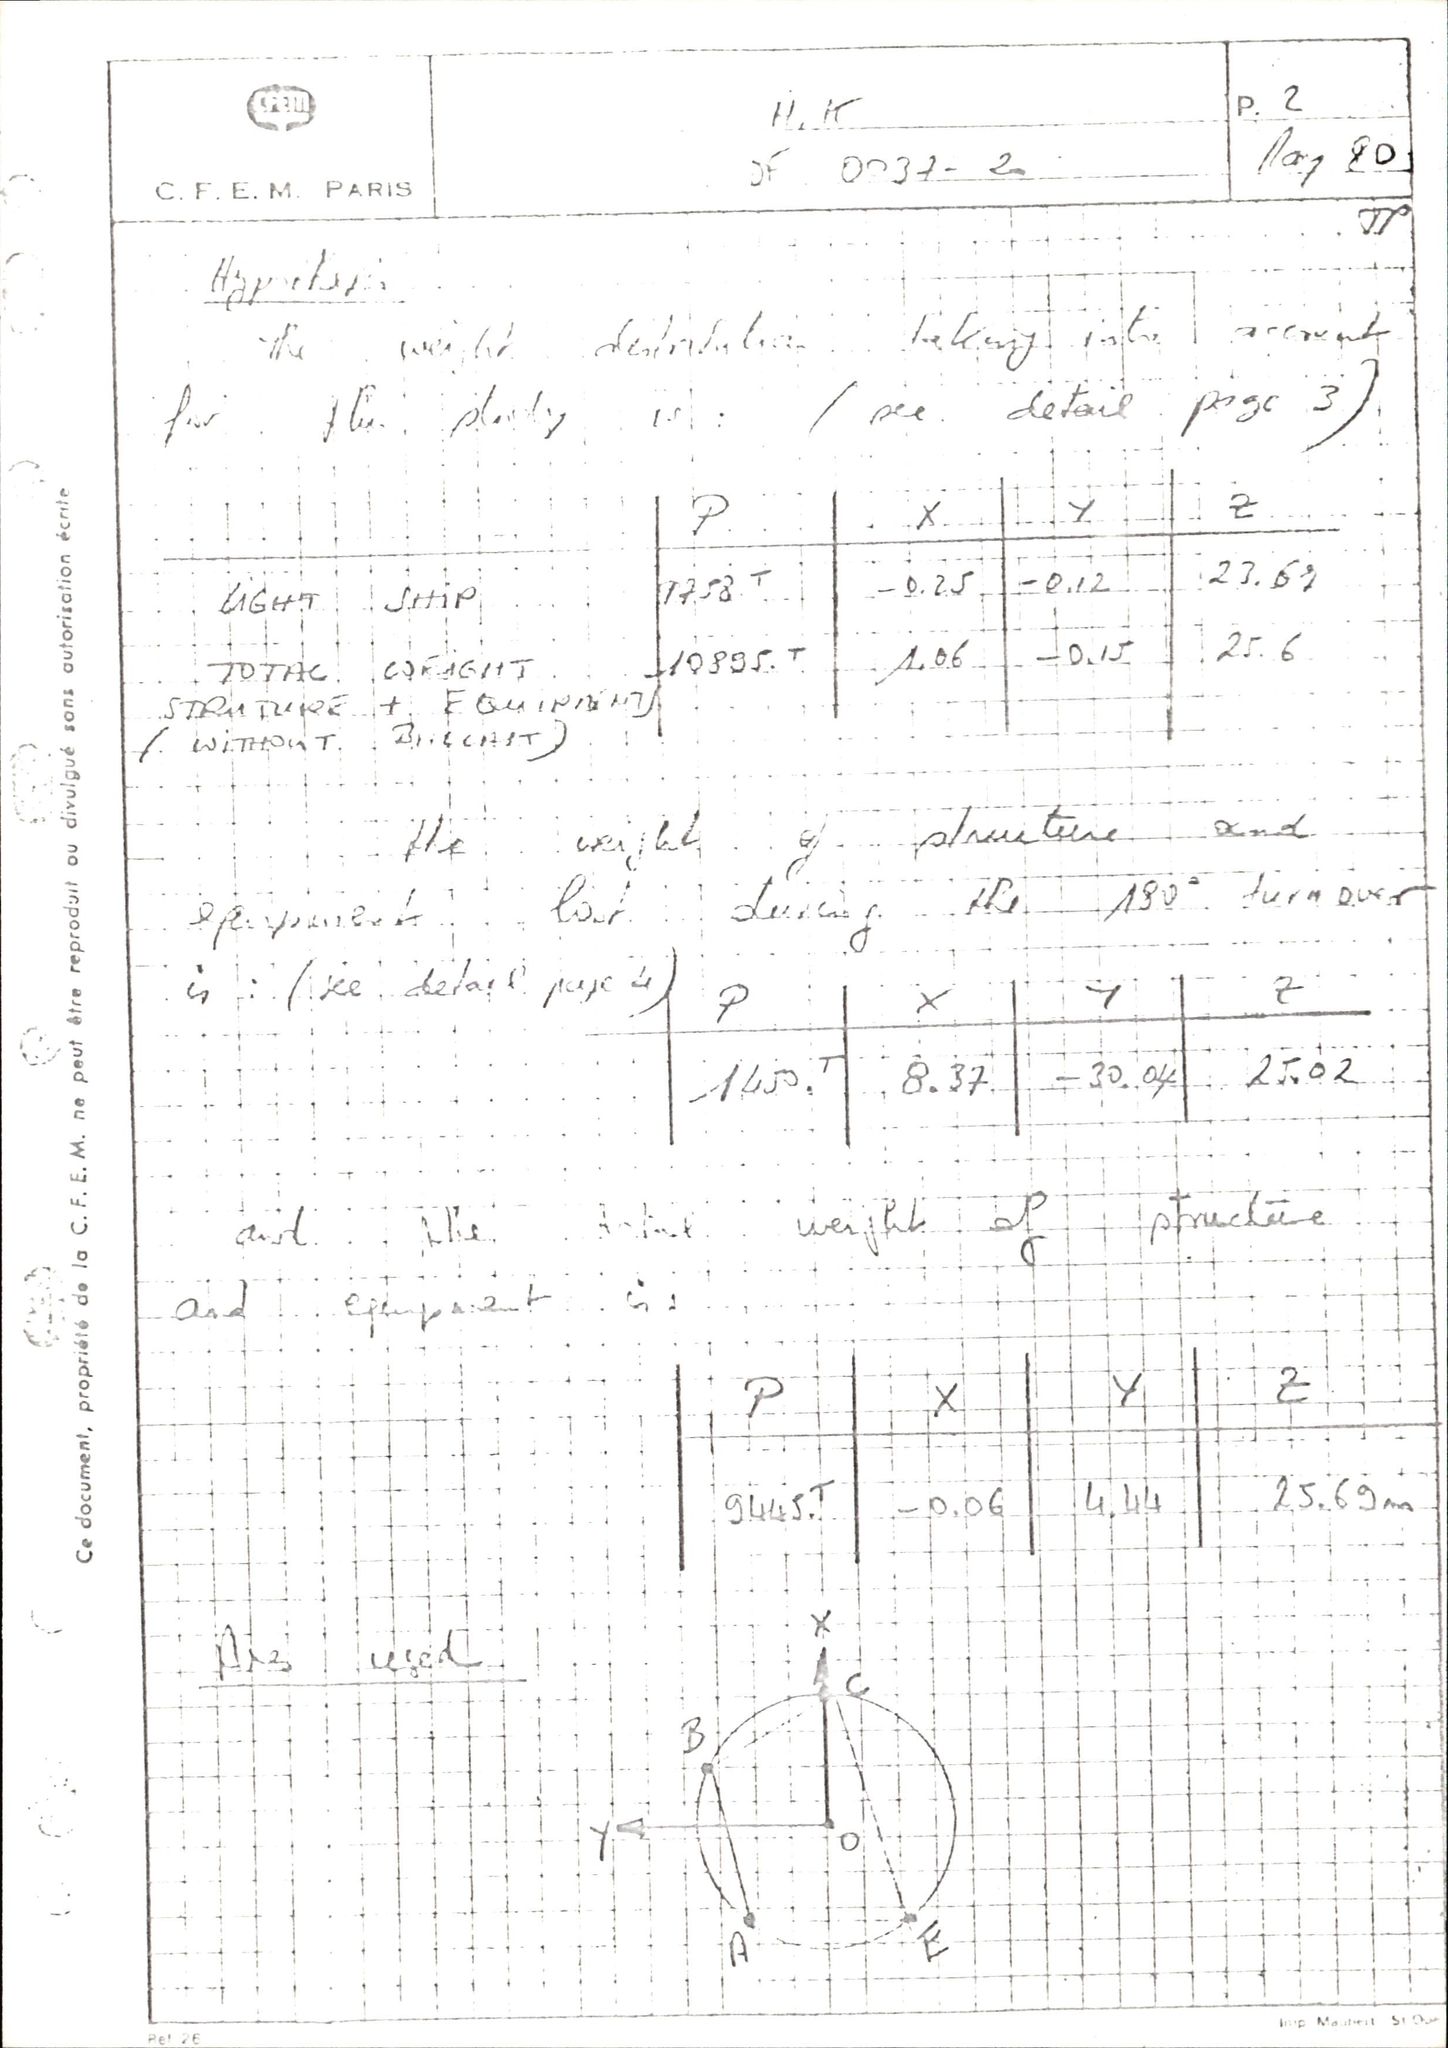 CFEM
C. F. E. M. PARIS
H. K
DF 0037-2
P. 2
May 80
Hypothesis
The weight distribution taking into account
for the study is : (see detail page 3)
P X Y Z
LIGHT SHIP 7758 T -0.25 -0.12 23.69
TOTAL WEIGHT 10895. T 1.06 -0.15 25.6
STRUTURE + EQUIPMENTS
(WITHOUT BALLAST)
the weight of structure and
equipment lost during the 180° turn over
is : (see detail page 4)
P X Y Z
1450. T 8.37 -30.04 25.02
and the total weight of structure
and equipment is :
P X Y Z
9445. T -0.06 4.44 25.69 m
Axes used
X
C
B
Y
O
A
E
Ce document, propriété de la C. F. E. M. ne peut être reproduit ou divulgué sans autorisation écrite
Ref. 26